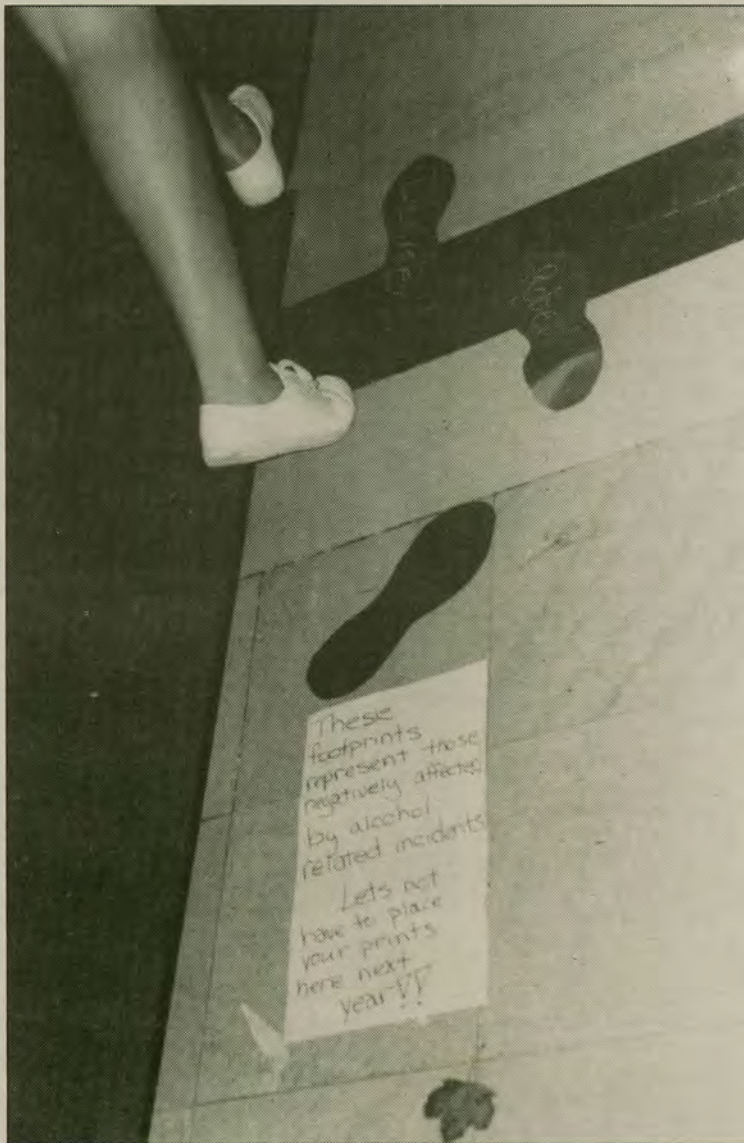 These
footprints
represent those
negatively affected
by alcohol
related incidents
Lets not
have to place
your prints
here next
year!!